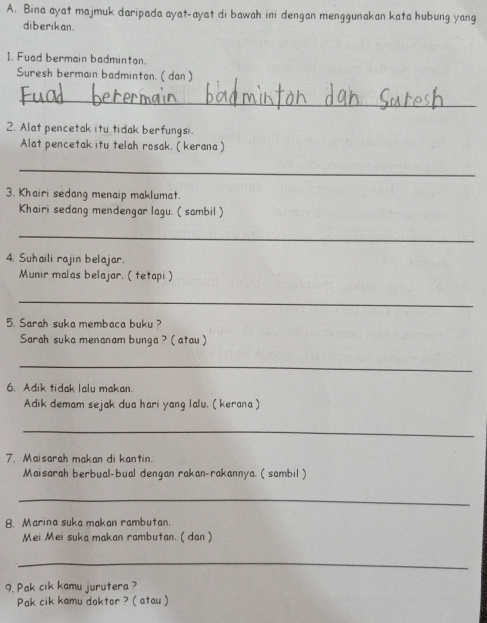 A. Bina ayat majmuk daripada ayat-ayat di bawah ini dengan menggunakan kata hubung yang
diberikan.
1. Fuad bermain badminton.
Suresh bermain badminton. ( dan )
Fuad berermain badminton dan Suresh
2. Alat pencetak itu tidak berfungsi.
Alat pencetak itu telah rosak. ( kerana )
3. Khairi sedang menaip maklumat.
Khairi sedang mendengar lagu. ( sambil )
4. Suhaili rajin belajar.
Munir malas belajar. ( tetapi )
5. Sarah suka membaca buku ?
Sarah suka menanam bunga ? ( atau )
6. Adik tidak lalu makan.
Adik demam sejak dua hari yang lalu. ( kerana )
7. Maisarah makan di kantin.
Maisarah berbual-bual dengan rakan-rakannya. ( sambil )
8. Marina suka makan rambutan.
Mei Mei suka makan rambutan. ( dan )
9. Pak cik kamu jurutera ?
Pak cik kamu doktor ? ( atau )